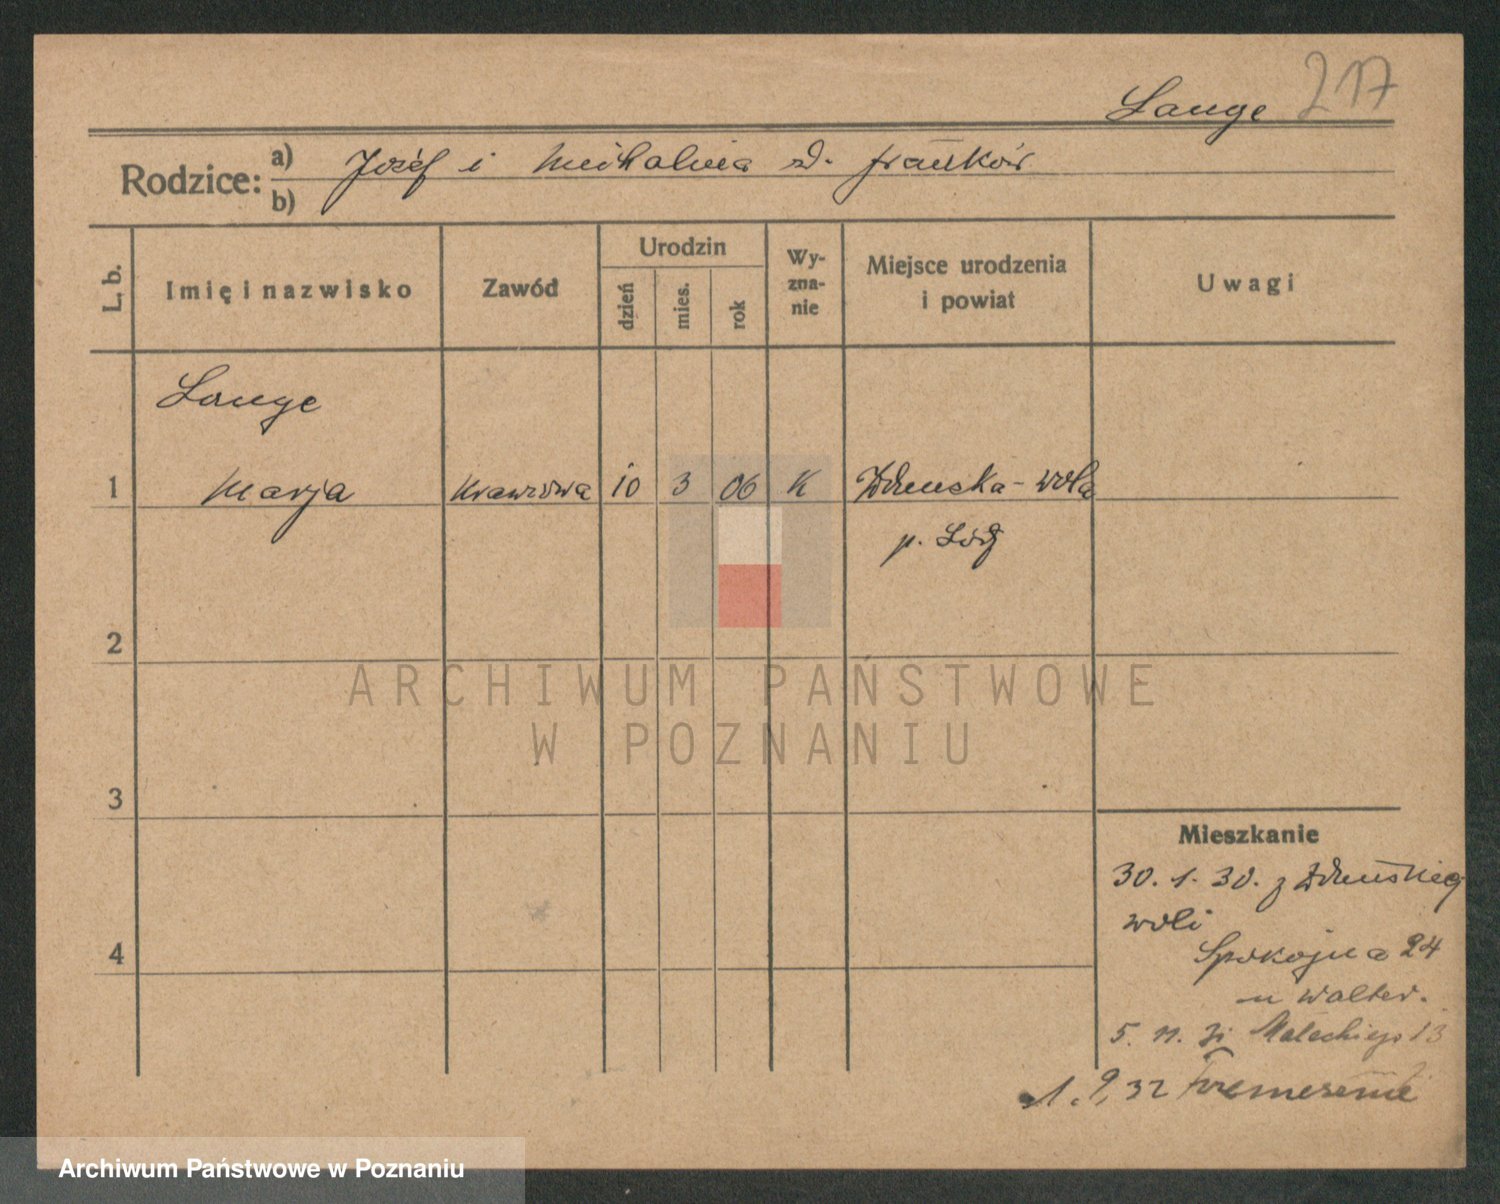 Lange 217
Rodzice: a) Józef i Michalina z d. Franków
b)
L. b.
Imię i nazwisko
Zawód
Urodzin
dzień
mies.
rok
Wy-
zna-
nie
Miejsce urodzenia
i powiat
Uwagi
Lange
1 Marja Krawcowa 10 3 06 K Zduńska-Wola
p. Łódź
2
ARCHIWUM PAŃSTWOWE
W POZNANIU
3
Mieszkanie
30. 1. 30. z Zduńskiej
Woli
4
Spokojna 24
u Walter.
5. 11. 31 Małeckiego 13
1. 9, 32
Archiwum Państwowe w Poznaniu